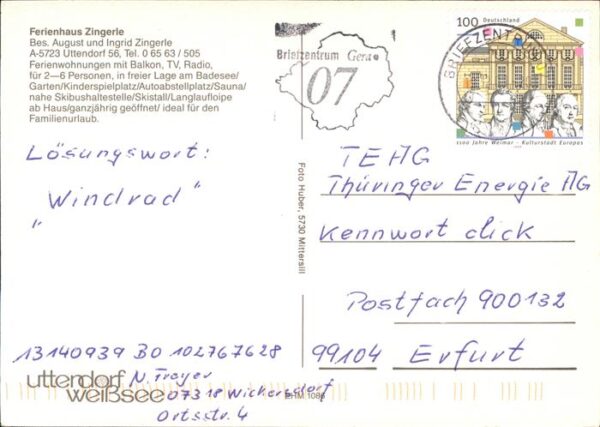 Ferienhaus Zingerle
Bes. August und Ingrid Zingerle
A-5723 Uttendorf 56, Tel. 0 65 63 / 505
Ferienwohnungen mit Balkon, TV, Radio,
für 2—6 Personen, in freier Lage am Badesee/
Garten/Kinderspielplatz/Autoabstellplatz/Sauna/
nahe Skibushaltestelle/Skistall/Langlaufloipe
ab Haus/ganzjährig geöffnet/ ideal für den
Familienurlaub.
Lösungswort:
"Windrad"
13140939 BO 102767628
N. Freyer
07318 Wickersdorf
Ortsstr. 4
uttendorf
weißsee
EHM 1086
Foto Huber, 5730 Mittersill
Briefzentrum Gera
07
BRIEFZENTRUM
100 Deutschland
1100 Jahre Weimar - Kulturstadt Europas
TEAG
Thüringer Energie AG
Kennwort click
Postfach 900132
99104 Erfurt